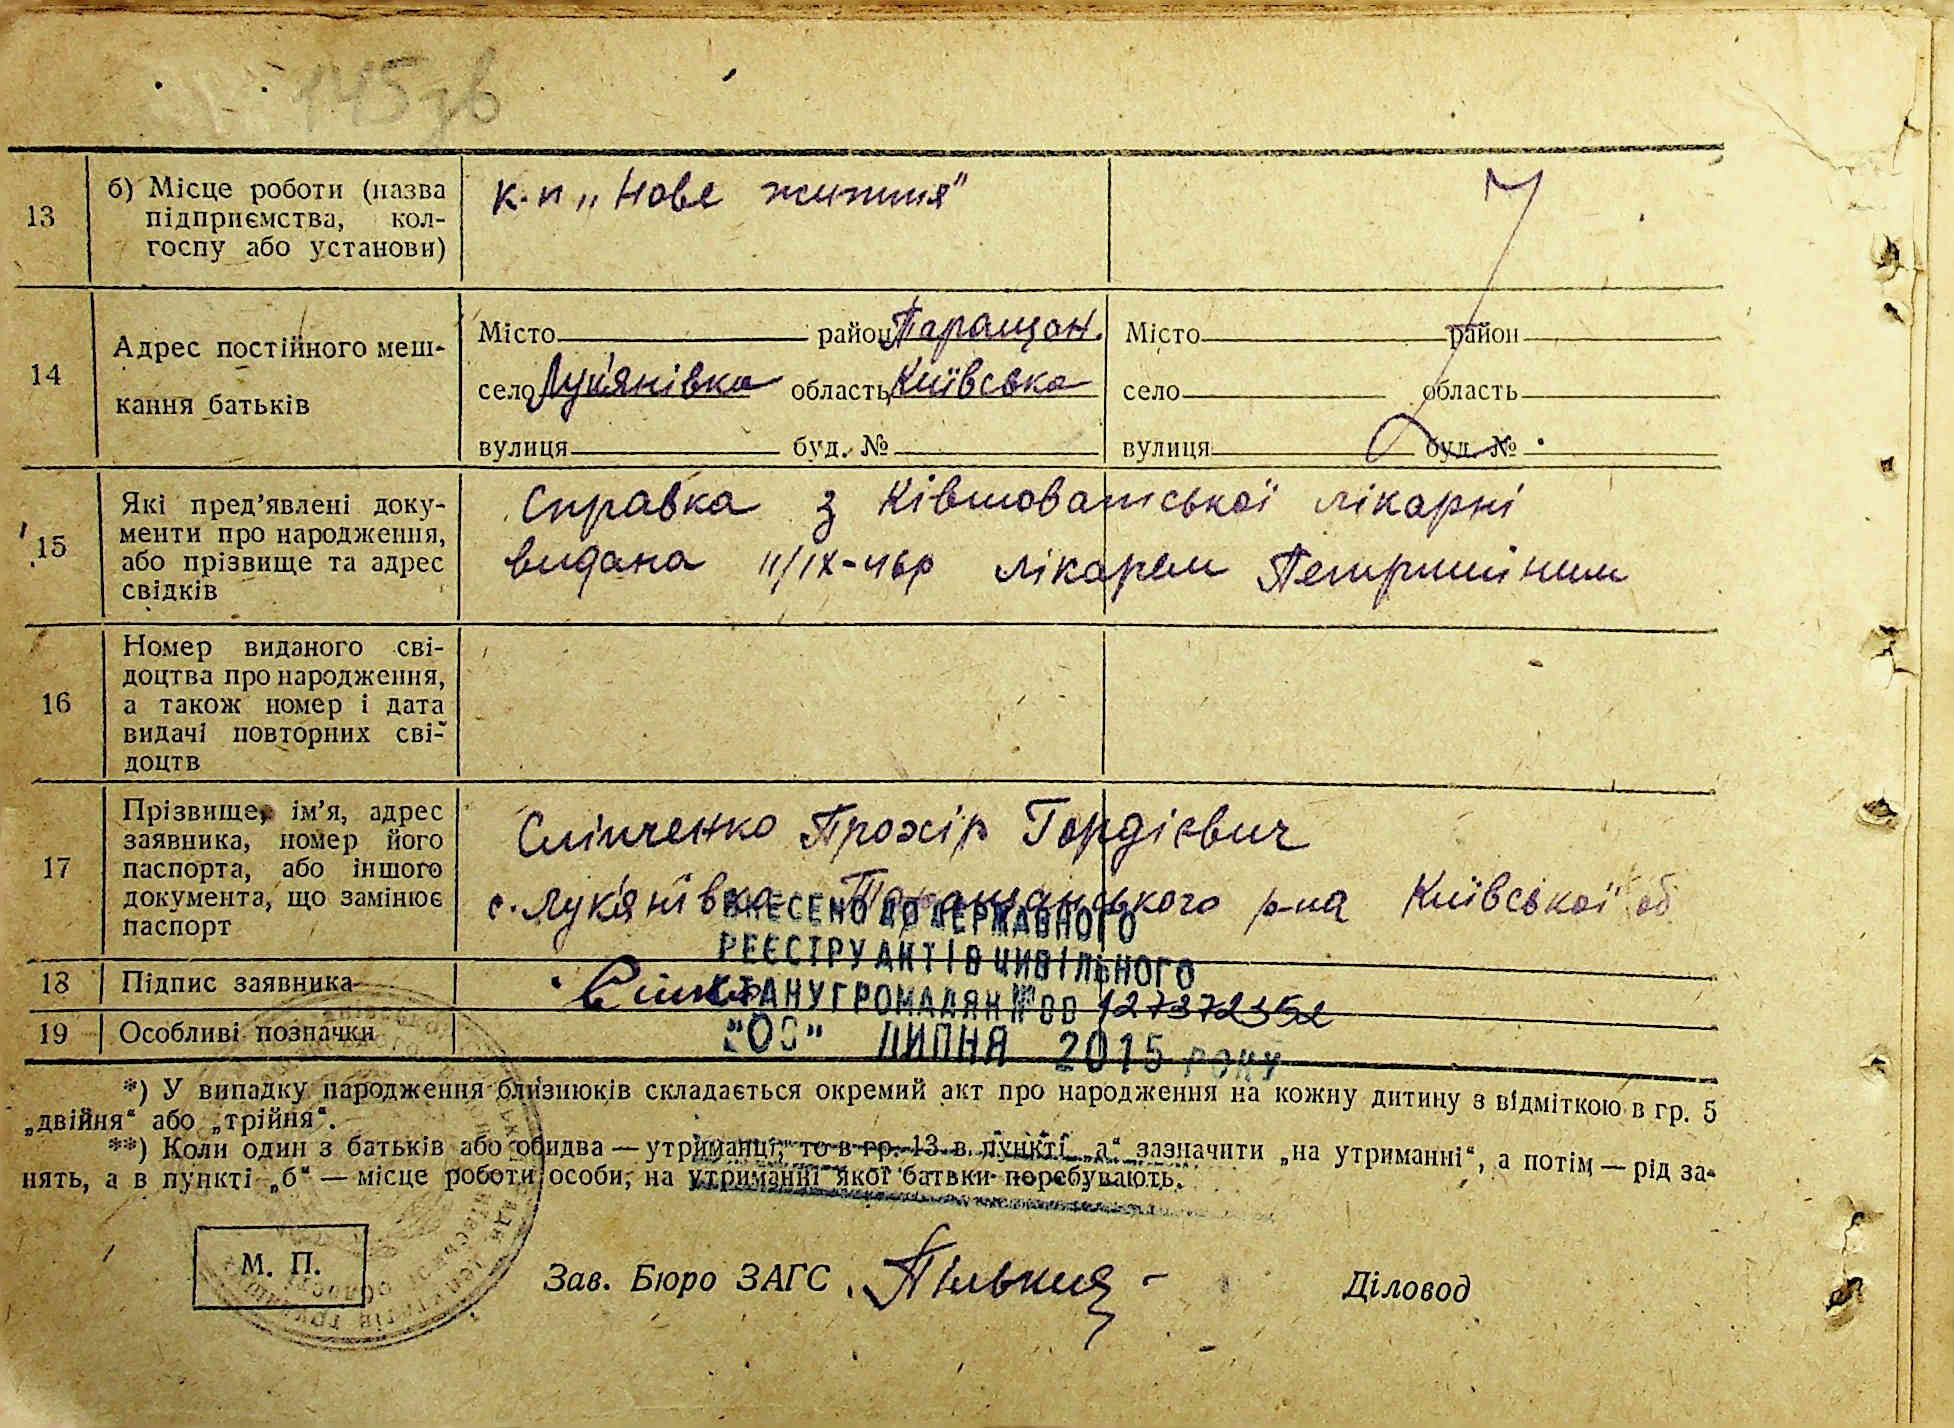 145зв
13
б) Місце роботи (назва
підприємства, кол-
госпу або установи)
к-п „Нове життя"
14
Адрес постійного меш-
кання батьків
Місто район Таращан.
село Лук'янівка область Київська
вулиця буд. №
Місто район
село область
вулиця буд. №
15
Які пред'явлені доку-
менти про народження,
або прізвище та адрес
свідків
Справка з Ківшоватської лікарні
видана 11/IX-46р лікарем
16
Номер виданого сві-
доцтва про народження,
а також номер і дата
видачі повторних сві-
доцтв
17
Прізвище, ім'я, адрес
заявника, номер його
паспорта, або іншого
документа, що замінює
паспорт
Сліпченко Прохір Гордієвич
с. Лук'янівка Таращанського р-на Київської об
ВНЕСЕНО ДО ДЕРЖАВНОГО
РЕЄСТРУ АКТІВ ЦИВІЛЬНОГО
СТАНУ ГРОМАДЯН № 00
ЛИПНЯ 2015 РОКУ
18
Підпис заявника
19
Особливі позначки
*) У випадку народження близнюків складається окремий акт про народження на кожну дитину з відміткою в гр. 5
„двійня" або „трійня".
**) Коли один з батьків або обидва — утриманці, то в гр. 13 в пункті „а" зазначити „на утриманні", а потім — рід за-
нять, а в пункті „б" — місце роботи особи, на утриманні якої батьки перебувають.
М. П.
Зав. Бюро ЗАГС
Діловод